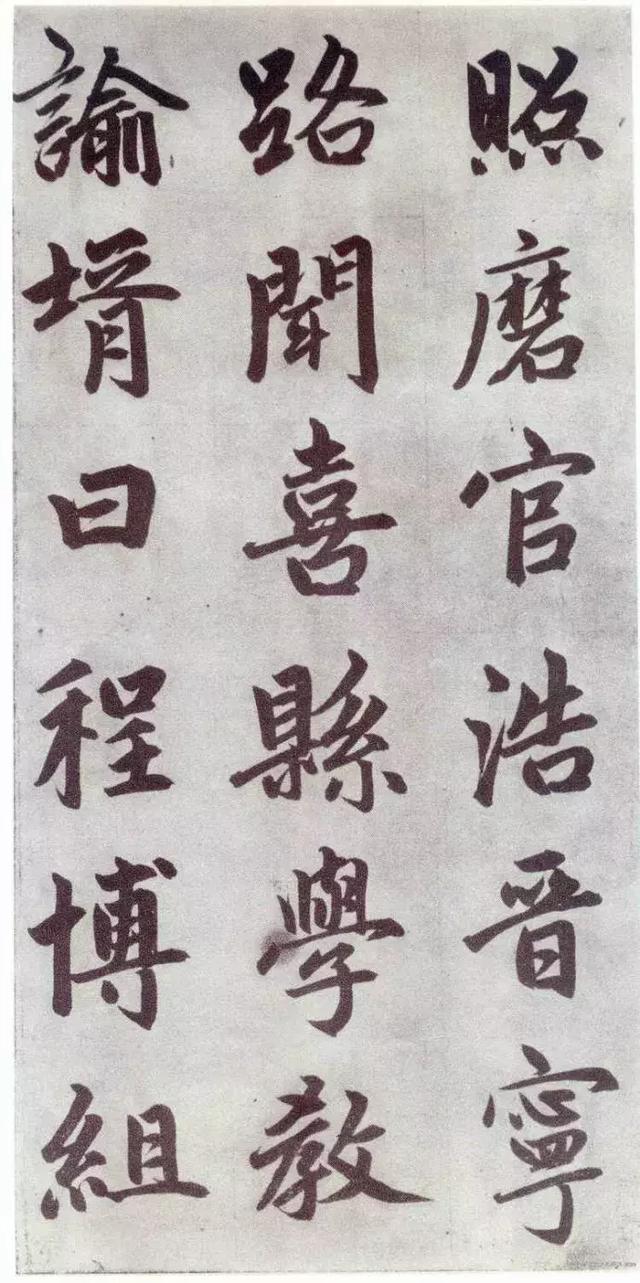 照磨官浩晋寧
路聞喜縣學教
諭壻曰程博組